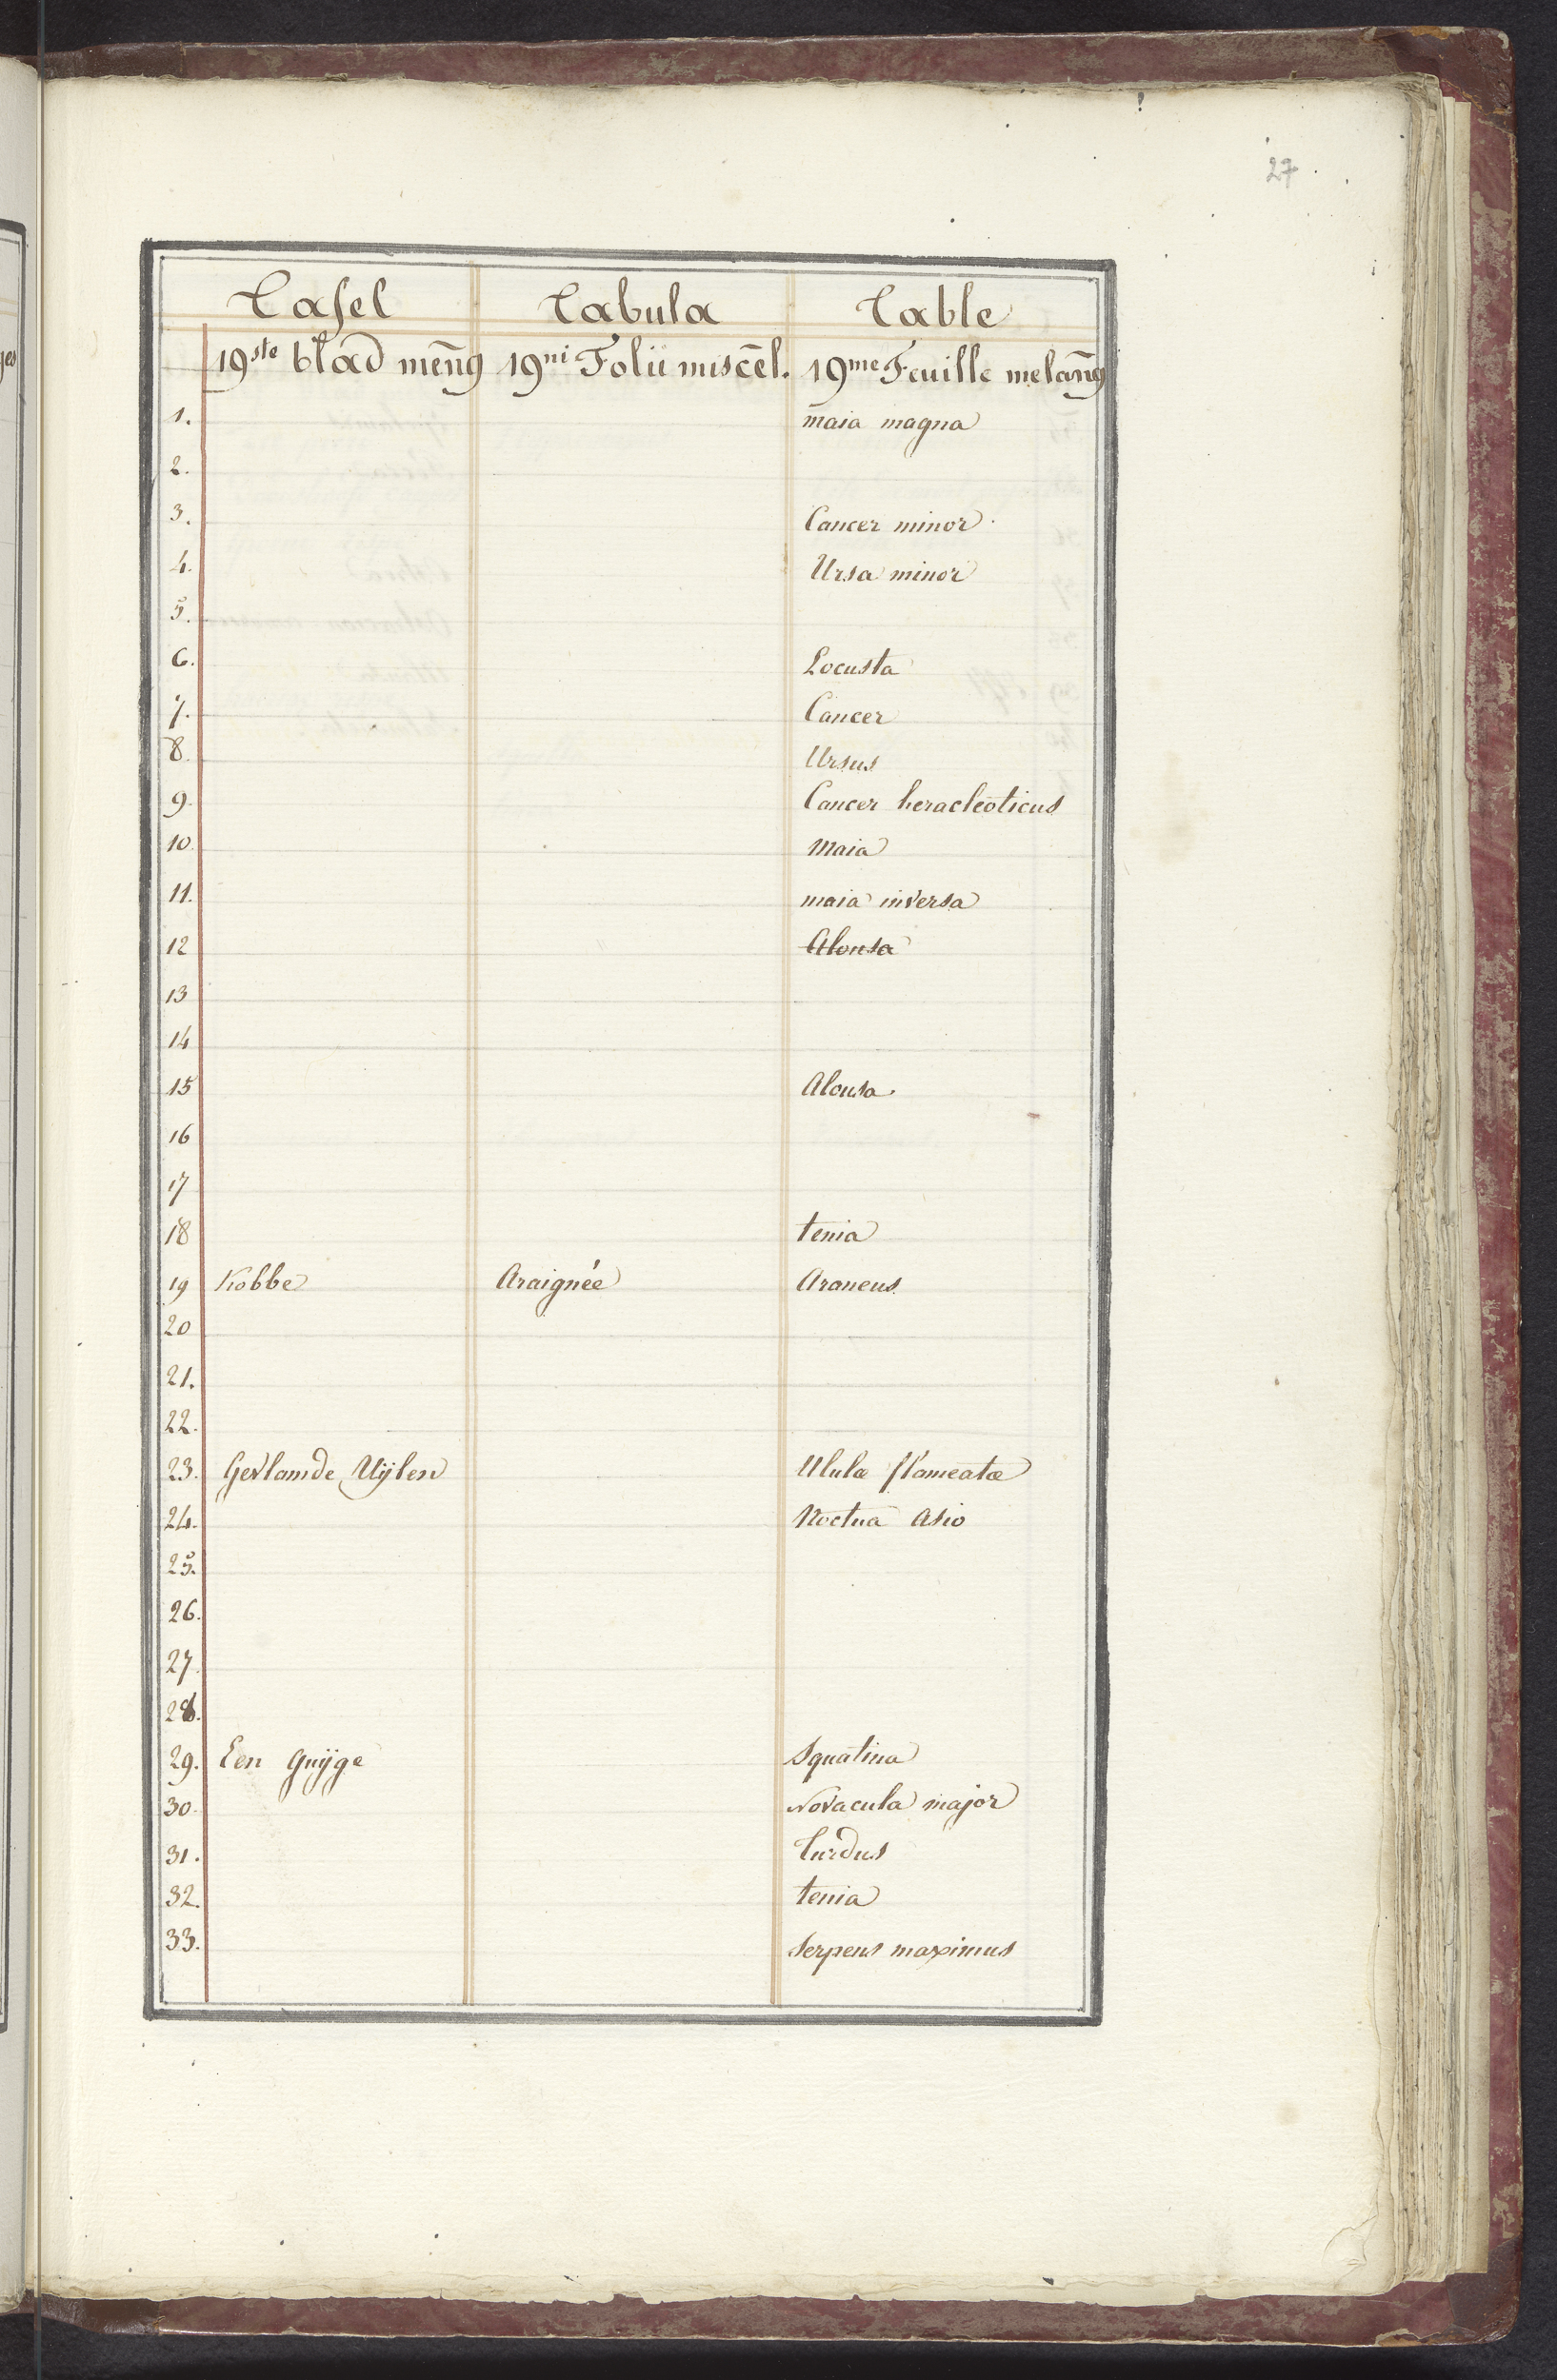 27
Tafel Tabula Table
19ste blad meñg 19ni Folii miscēl. 19me Feuille melañg
1. maia magna
2.
3. Cancer minor
4. Ursa minor
5.
6. Locusta
7. Cancer
8 Ursus
9. Cancer heracleoticus
10. Maia
11. maia inversa
12 Alousa
13
14
15 Alousa.
16
17
18 tenia
19 Kobbe Araignée Araneus
20
21.
22.
23. Gevlamde Uÿlen Ululæ flameatæ
24. Noctua Asio
25.
26.
27.
28.
29. Een Guÿge Squatina
30. Novacula major
31. Turdus
32. tenia
33. Serpens maximus